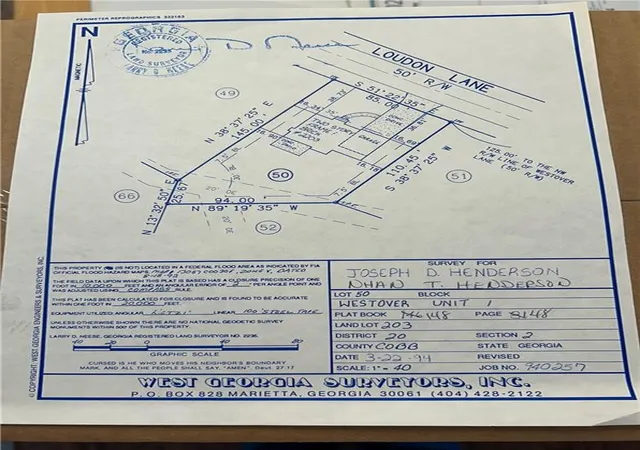 PERIMETER REPROGRAPHICS 522163
N
MAGNETIC
GEORGIA
REGISTERED
LAND SURVEYOR
LARRY D. NEESE
LOUDON LANE
50' R/W
S 51° 22' 35"
85.00'
49
N 38° 37' 25" E
145.00'
TWO STORY
FRAME
#2003
CONC.
DRIVE
125.00' TO THE NW
R/W LINE OF WESTOVER
LANE (50' R/W)
110.45'
S 38° 37' 25" W
16.90
16.78
50
51
66
N 13° 32' 50" E
25.67'
94.00'
N 89° 19' 35" W
52
THIS PROPERTY (IS NOT) LOCATED IN A FEDERAL FLOOD AREA AS INDICATED BY FIA
OFFICIAL FLOOD HAZARD MAPS. DATED
8-18-92
THE FIELD DATA UPON WHICH THIS PLAT IS BASED HAS A CLOSURE PRECISION OF ONE
FOOT IN 10,000 FEET AND AN ANGULAR ERROR OF PER ANGLE POINT AND
WAS ADJUSTED USING COMPASS RULE.
THIS PLAT HAS BEEN CALCULATED FOR CLOSURE AND IS FOUND TO BE ACCURATE
WITHIN ONE FOOT IN 20,000 FEET.
EQUIPMENT UTILIZED: ANGULAR LINEAR 100' STEEL TAPE
UNLESS OTHERWISE SHOWN THERE ARE NO NATIONAL GEODETIC SURVEY
MONUMENTS WITHIN 500' OF THIS PROPERTY.
LARRY D. NEESE, GEORGIA REGISTERED LAND SURVEYOR NO. 2235.
40 20 0 40 80
GRAPHIC SCALE
CURSED IS HE WHO MOVES HIS NEIGHBOR'S BOUNDARY
MARK, AND ALL THE PEOPLE SHALL SAY, "AMEN". Deut. 27:17
SURVEY FOR
JOSEPH D. HENDERSON
NHAN T. HENDERSON
LOT 50 BLOCK
WESTOVER UNIT 1
PLAT BOOK 148 PAGE 148
LAND LOT 203
DISTRICT 20 SECTION 2
COUNTY COBB STATE GEORGIA
DATE 3-22-94 REVISED
SCALE: 1" - 40 JOB NO. 940257
WEST GEORGIA SURVEYORS, INC.
P.O. BOX 828 MARIETTA, GEORGIA 30061 (404) 428-2122
© COPYRIGHT: WEST GEORGIA ENGINEERS & SURVEYORS, INC.